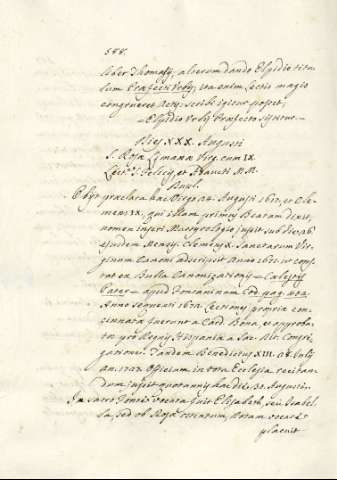 588.
liber Thomasij, alterum dando Elpidio titu
lum Praefecti Urbis, ita enim lectio magis
congrueret Actis: scribi igitur posset,
= Elpidio Urbis Praefecto sistitur =
Die XXX. Augusti
S. Rosa Limana Virg. cum IX
Lect. S. Felicis et Adaucti M.M.
Dupl.
Obijt praeclara haec Virgo an. Augusti 1617. et Cle
mens IX, qui illam primus Beatam dixit,
nomen inseri Martyrologio jussit sub die 26
ejusdem Mensis. Clemens X. Sanctarum Vir
ginum Canoni adscripsit Anno 1671. ut cons
tat ex Bulla Canonizationis = Caelestis
Pater = apud Fontaninum Cod. pag.
Anno sequenti 1672. Lectiones propriae con
cinnatae fuerunt a Card. Bona, et approba
tae pro Regnis Hispaniae a Sac. Rit. Congre
gatione. Tandem Benedictus XIII. 
an. Officium in tota Ecclesia recitan
dum jussit quotannis hac die 30. Augusti.
In sacro Fonte vocata fuit Elisabeth, seu Isabel
la, sed ob Rosae vocare
placuit